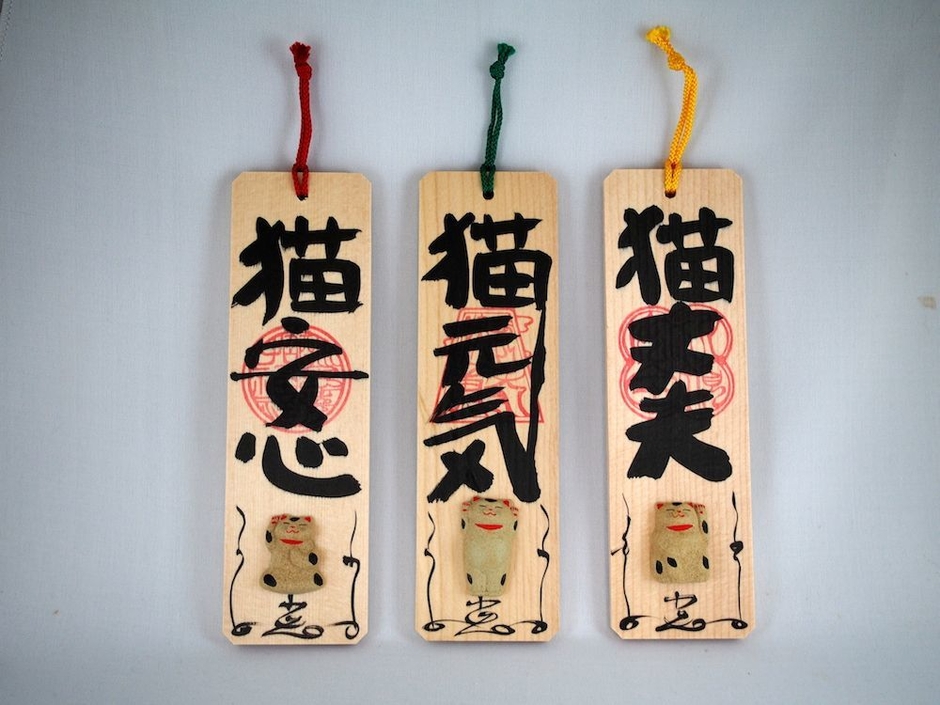 猫安心
猫元気
猫丈夫